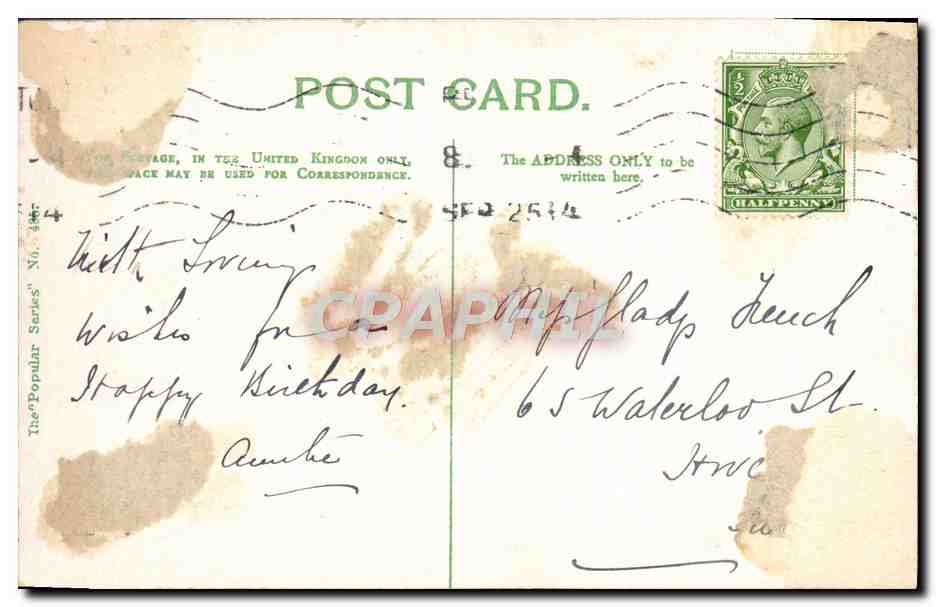 POST CARD.
POSTAGE, IN THE UNITED KINGDOM ONLY,
MAY BE USED FOR CORRESPONDENCE.
The ADDRESS ONLY to be
written here.
½
HALFPENNY
8.
SEP 25 14
The "Popular Series" No.
With Loving
Wishes for a
Happy Birthday.
Auntie
Miss Gladys French
65 Waterloo St.
CPARAMA